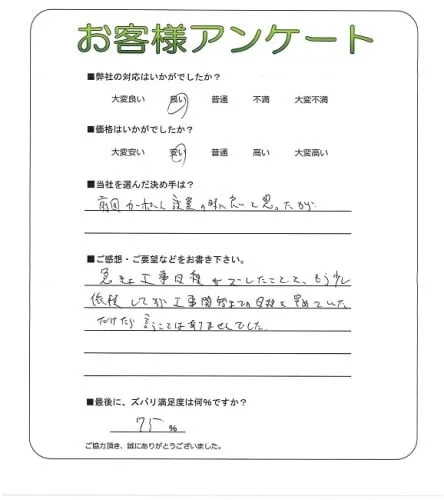 お客様アンケート
■弊社の対応はいかがでしたか？
大変良い 良い 普通 不満 大変不満
■価格はいかがでしたか？
大変安い 安い 普通 高い 大変高い
■当社を選んだ決め手は？
前回カーポート設置の時に良いと思ったから
■ご感想・ご要望などをお書き下さい。
急きょ工事日程がズレたことと、もう少し
依頼してから工事開始までの日程を早めていた
だけたら言うことはありませんでした。
■最後に、ズバリ満足度は何％ですか？
75 %
ご協力頂き、誠にありがとうございました。